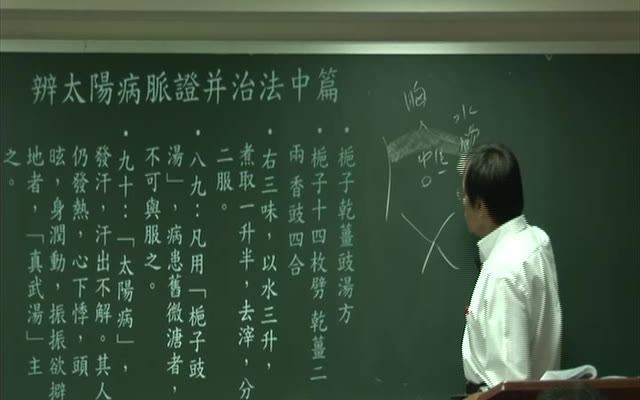 辨太陽病脈證并治法中篇
• 梔子乾薑豉湯方
• 梔子十四枚劈 乾薑二
兩 香豉四合
• 右三味，以水三升，
煮取一升半，去滓，分
二服。
• 八九：凡用「梔子豉
湯」，病患舊微溏者，
不可與服之。
• 九十：「太陽病」，
發汗，汗出不解。其人
仍發熱，心下悸，頭
眩，身潤動，振振欲擗
地者，「真武湯」主
之。
胸
中
水